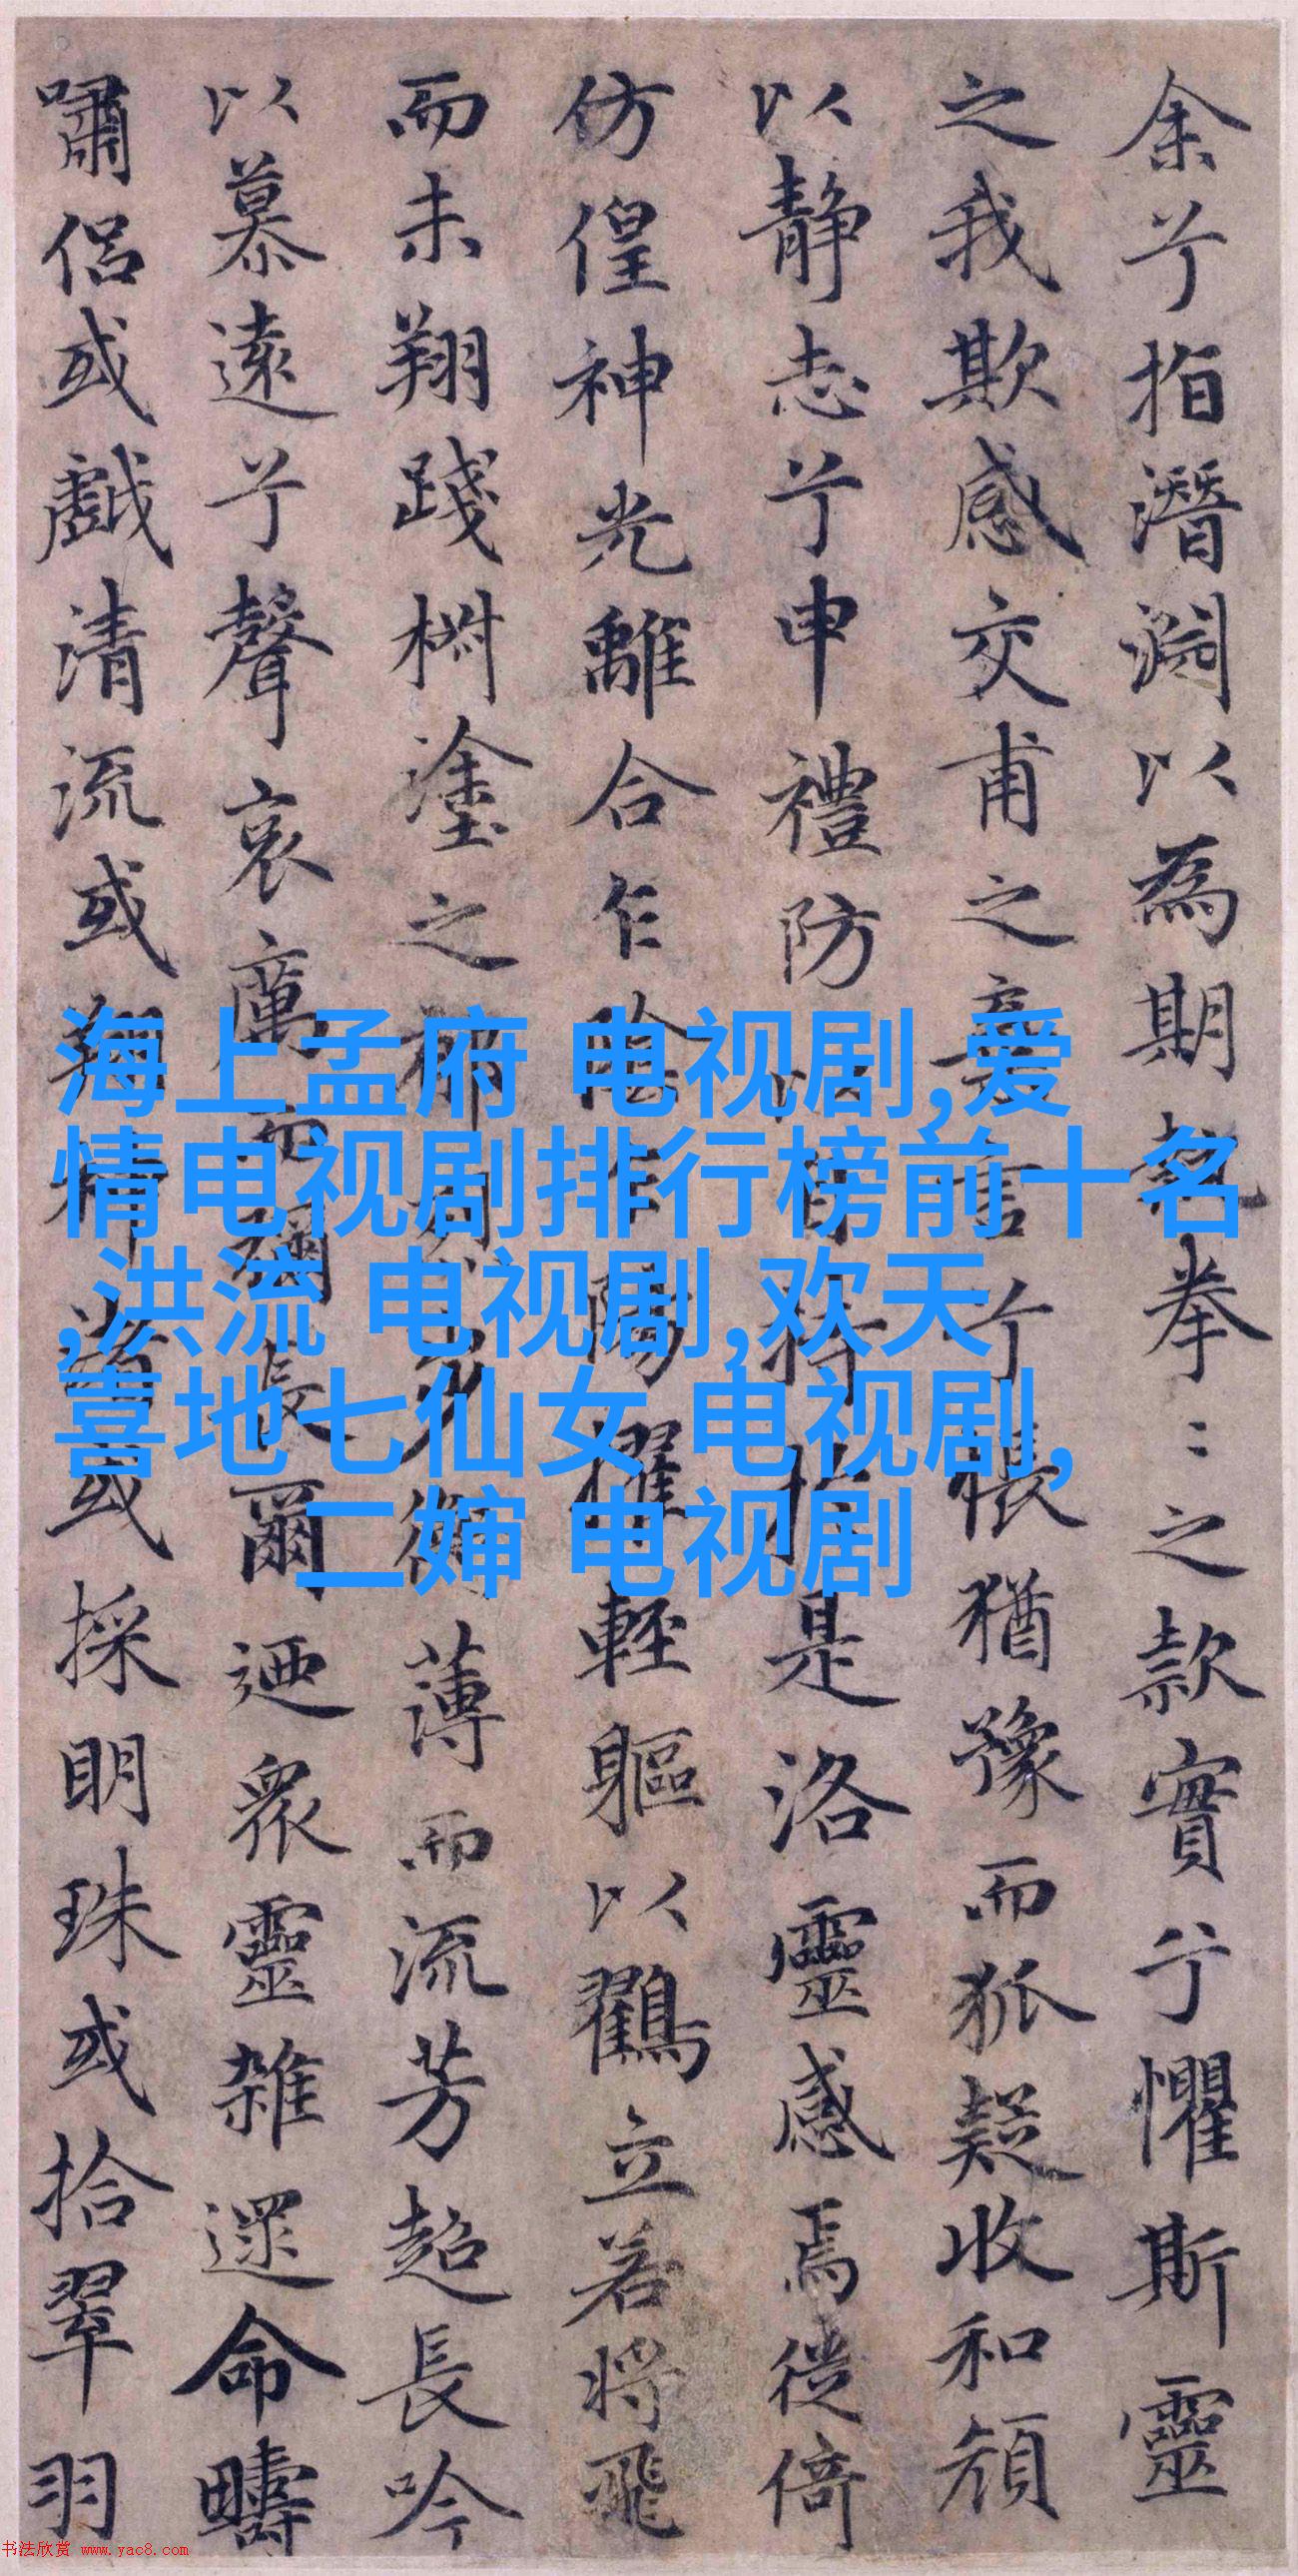 余兮指潛淵以為期執拳〻之款實兮懼斯靈
之我欺感交甫之棄言兮悵猶豫而狐疑收和顏
以靜志兮申禮防以自持於是洛靈感焉徙倚
仿偟神光離合乍陰乍陽擢輕軀以鶴立若將飛
而未翔踐椒塗之郁烈步衡薄而流芳超長吟
以慕遠兮聲哀厲而彌長爾迺眾靈雜遝命疇
嘯侶或戲清流或翔神渚或採明珠或拾翠羽
海上孟府 电视剧,爱
情电视剧排行榜前十名
,洪流 电视剧,欢天
喜地七仙女 电视剧,
二婶 电视剧
书法欣赏 www.yac8.com